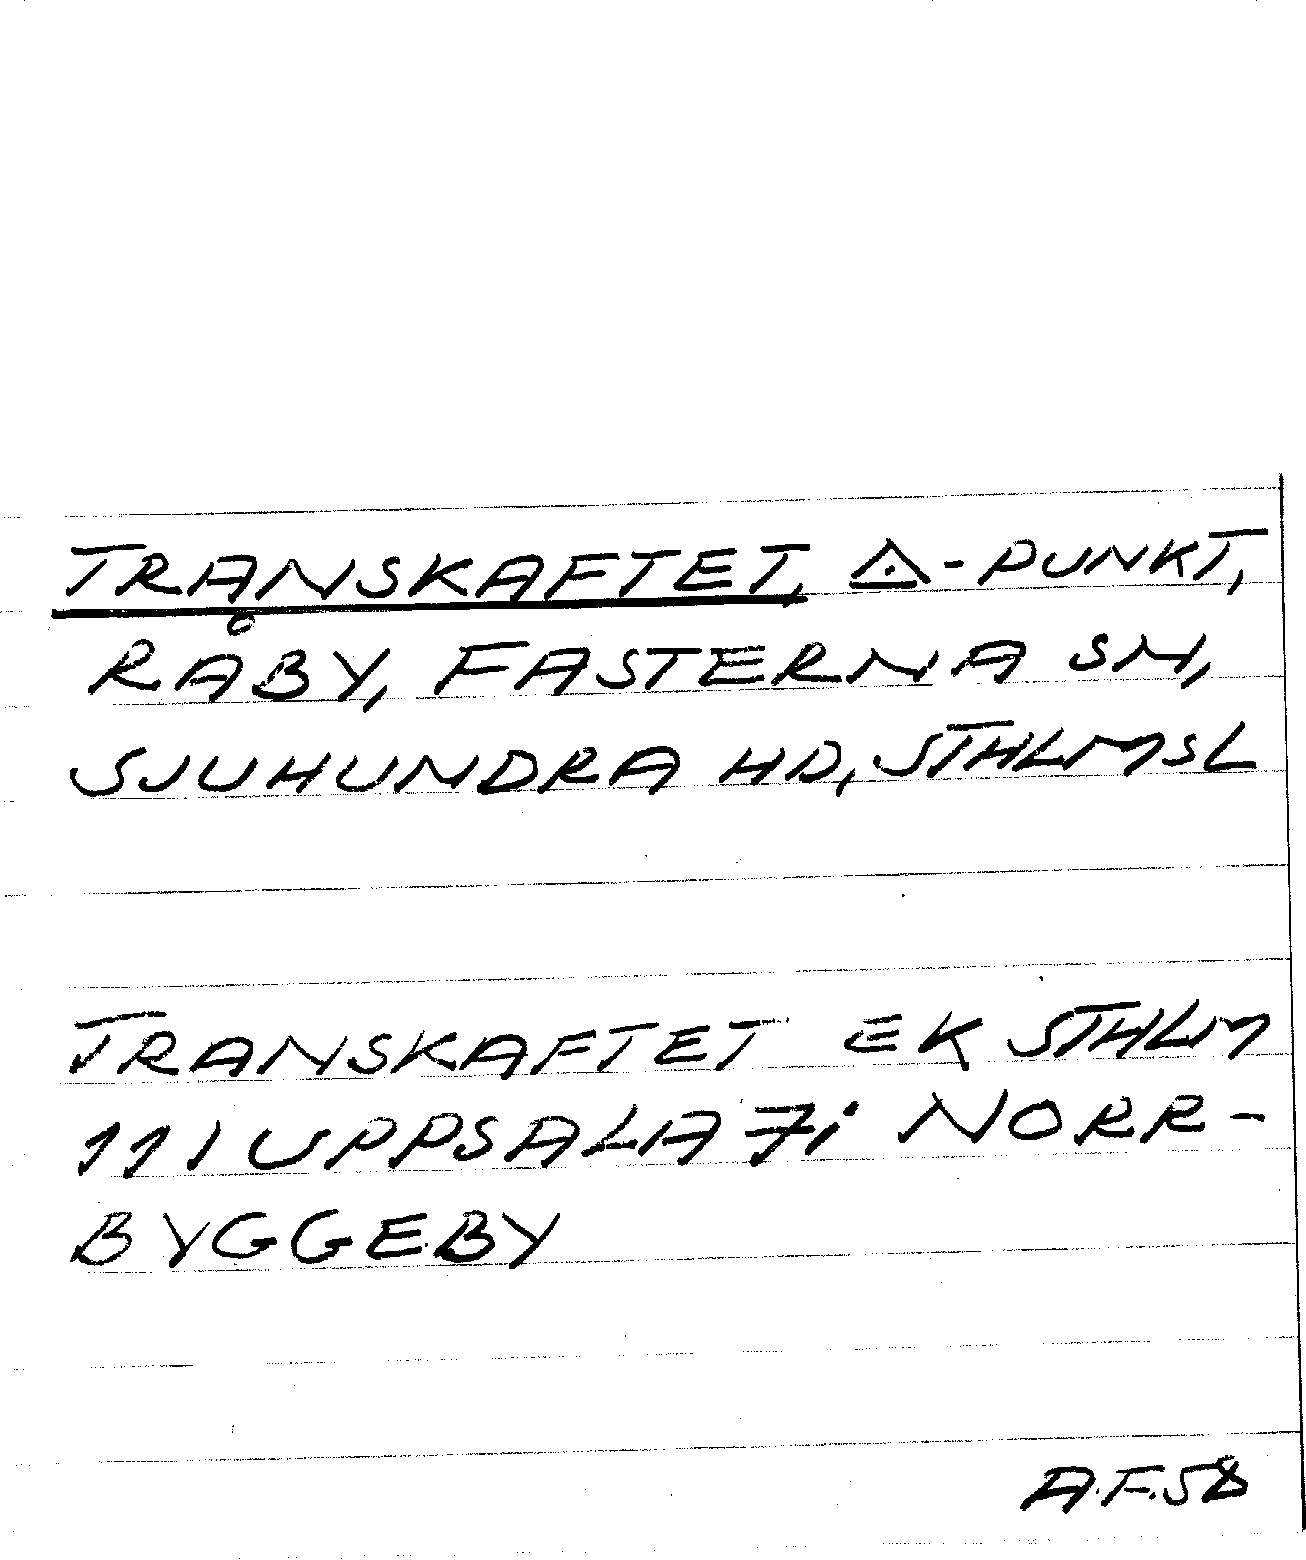 TRANSKAFTET, △-PUNKT,
RÅBY, FASTERNA SN,
SJUHUNDRA HD, STHLMSL
TRANSKAFTET EK STHLM
111 UPPSALA 7i NORR-
BYGGEBY
A.F.58